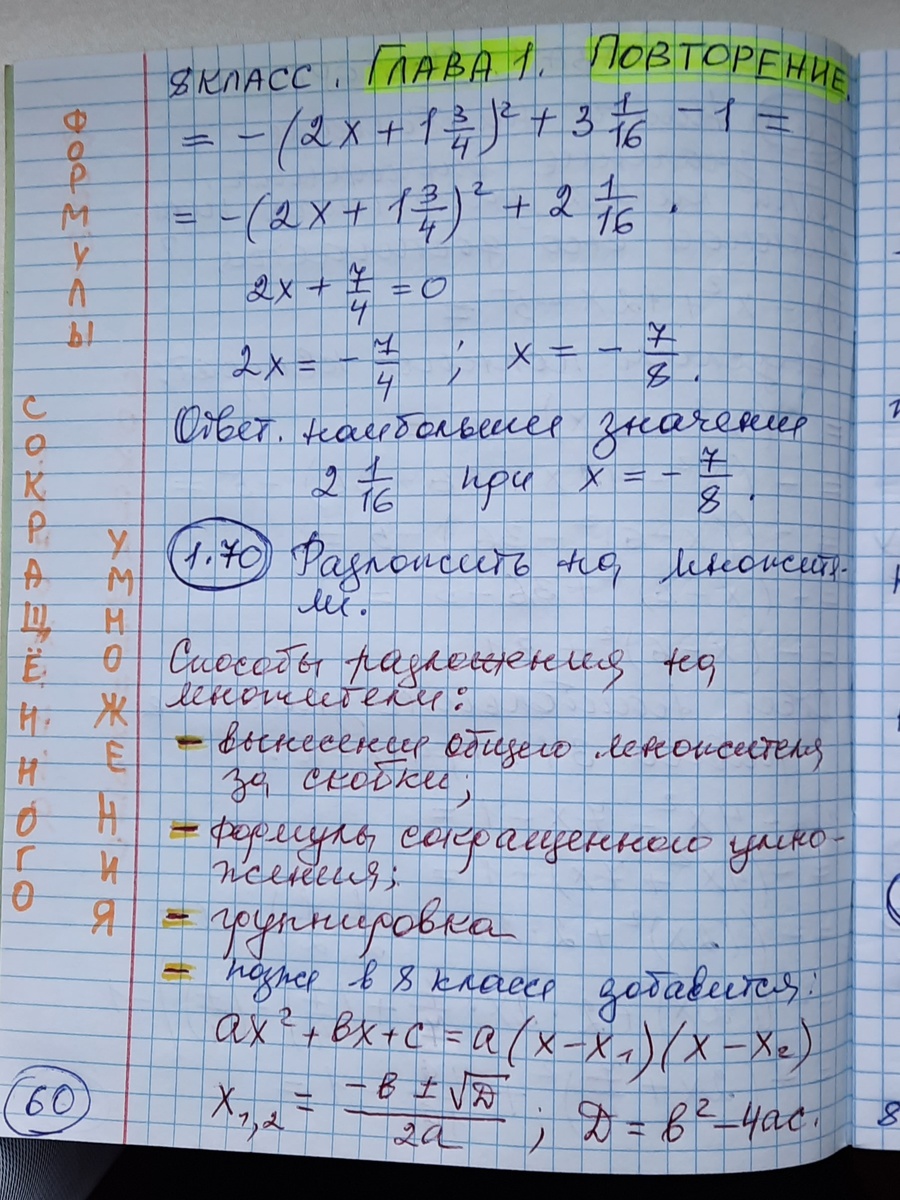 8 КЛАСС. ГЛАВА 1. ПОВТОРЕНИЕ.
= - (2x + 1 3/4)² + 3 1/16 - 1 =
= -(2x + 1 3/4)² + 2 1/16.
2x + 7/4 = 0
2x = - 7/4 ; x = - 7/8.
Ответ. наибольшее значение
2 1/16 при x = - 7/8.
1.70 Разложить на множите-
ли.
Способы разложения на
множители:
- вынесение общего множителя
за скобки;
- формулы сокращенного умно-
жения;
- группировка
- позже в 8 классе добавится:
ax² + bx + c = a(x - x₁)(x - x₂)
x₁,₂ = (-b ± √D)/2a ; D = b² - 4ac.
60
ФОРМУЛЫ
СОКРАЩЁННОГО
УМНОЖЕНИЯ